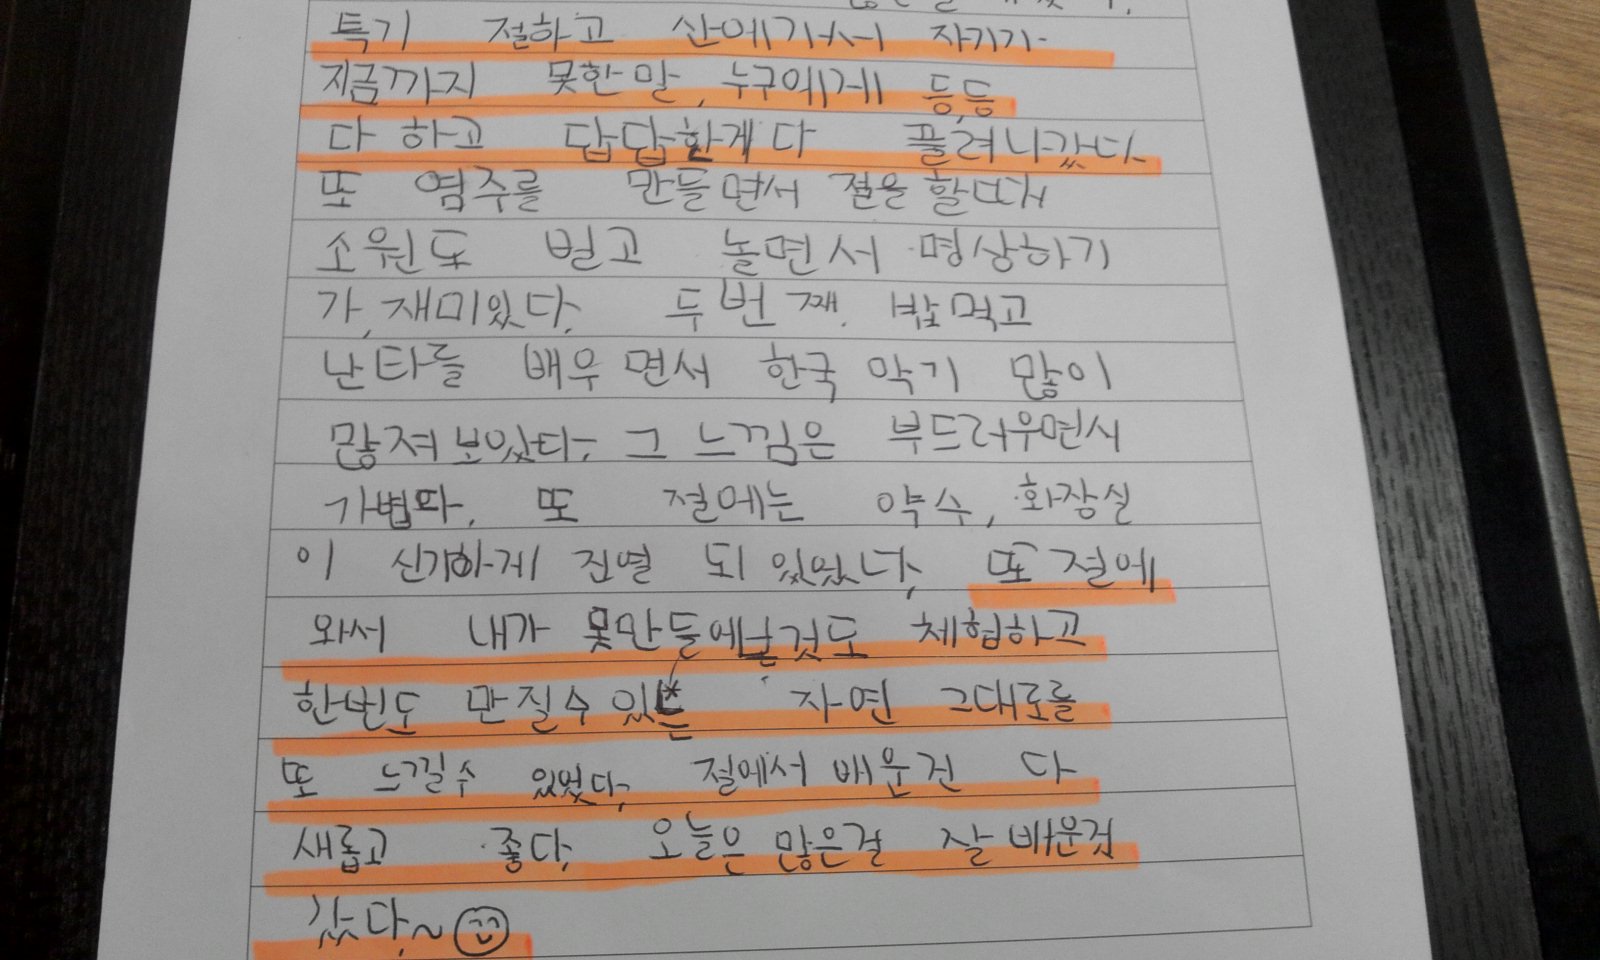 특기 절하고 산에가서 자기가
지금까지 못한말, 누구에게 등등
다 하고 답답한게 다 풀려나갔다
또 염주를 만들면서 절을 할때
소원도 빌고 놀면서 명상하기
가, 재미있다. 두번째. 밥먹고
난타를 배우면서 한국 악기 많이
많져보았다. 그 느낌은 부드러우면서
가볍다. 또 절에는 약수, 화장실
이 신기하게 진열 되있었다. 또 절에
와서 내가 못만들어본것도 체험하고
한번도 만질수있는 자연 그대로를
또 느낄수 있었다. 절에서 배운건 다
새롭고 좋다. 오늘은 많은걸 잘 배운것
같다.~